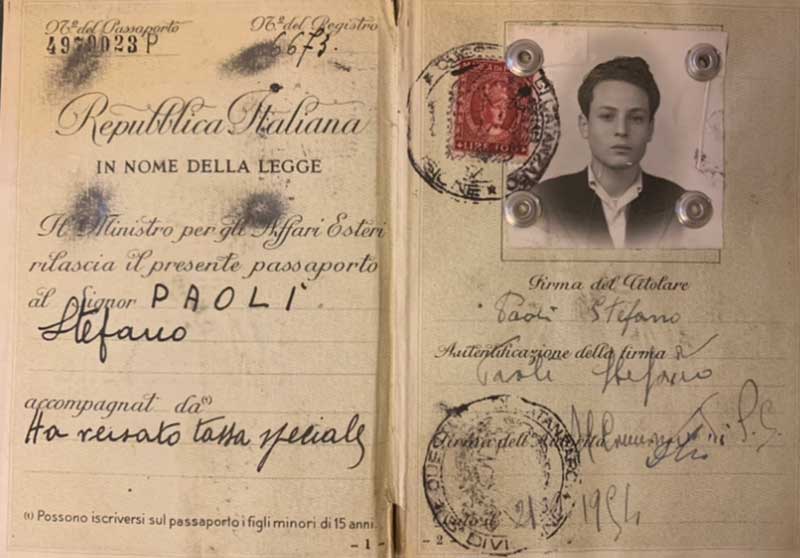 N.º del Passaporto N.º del Registro
4970023 P 6673.
Repubblica Italiana
IN NOME DELLA LEGGE
Il Ministro per gli Affari Esteri
rilascia il presente passaporto
al Signor PAOLI
Stefano
accompagnat da (1)
Ha versato tassa speciale
(1) Possono iscriversi sul passaporto i figli minori di 15 anni.
- 1 -
CATANZARO
LIRE 100
Firma del Titolare
Paoli Stefano
Autentificazione della firma
Paoli Stefano
Firma dell'Autorità di P.S.
21 1954
DIVI
- 2 -